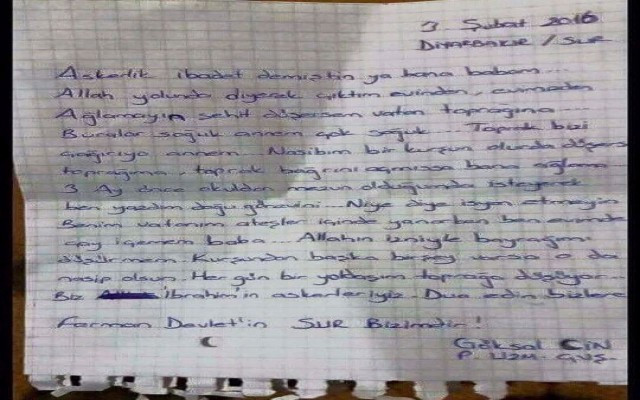 3 Şubat 2016
DİYARBAKIR / SUR
Askerlik ibadet demiştin ya bana babam...
Allah yolunda diyerek çıktım evimden, evimizden
Ağlamayın şehit düşersem vatan toprağına....
Buralar soğuk annem çok soğuk... Toprak bizi
çağırıyo annem. Nasibim bir kurşun olurda düşersem
toprağıma, toprak bağrını açmışsa bana ağlama...
3 Ay önce okuldan mezun olduğumda isteyerek
ben yazdım doğu görevini. Niye diye isyan etmeyin
Benim vatanım ateşler içinde yanarken ben evimde
çay içemem baba... Allahın izniyle bayrağımı
düşürmem Kurşundan başka birşey varsa o da
nasip olsun. Her gün bir yoldaşım toprağa düşüyor...
Biz İbrahim'in askerleriyiz. Dua edin bizlere
Ferman Devlet'in SUR Bizimdir!
Göksal CİN
P. UZM. ÇVŞ.